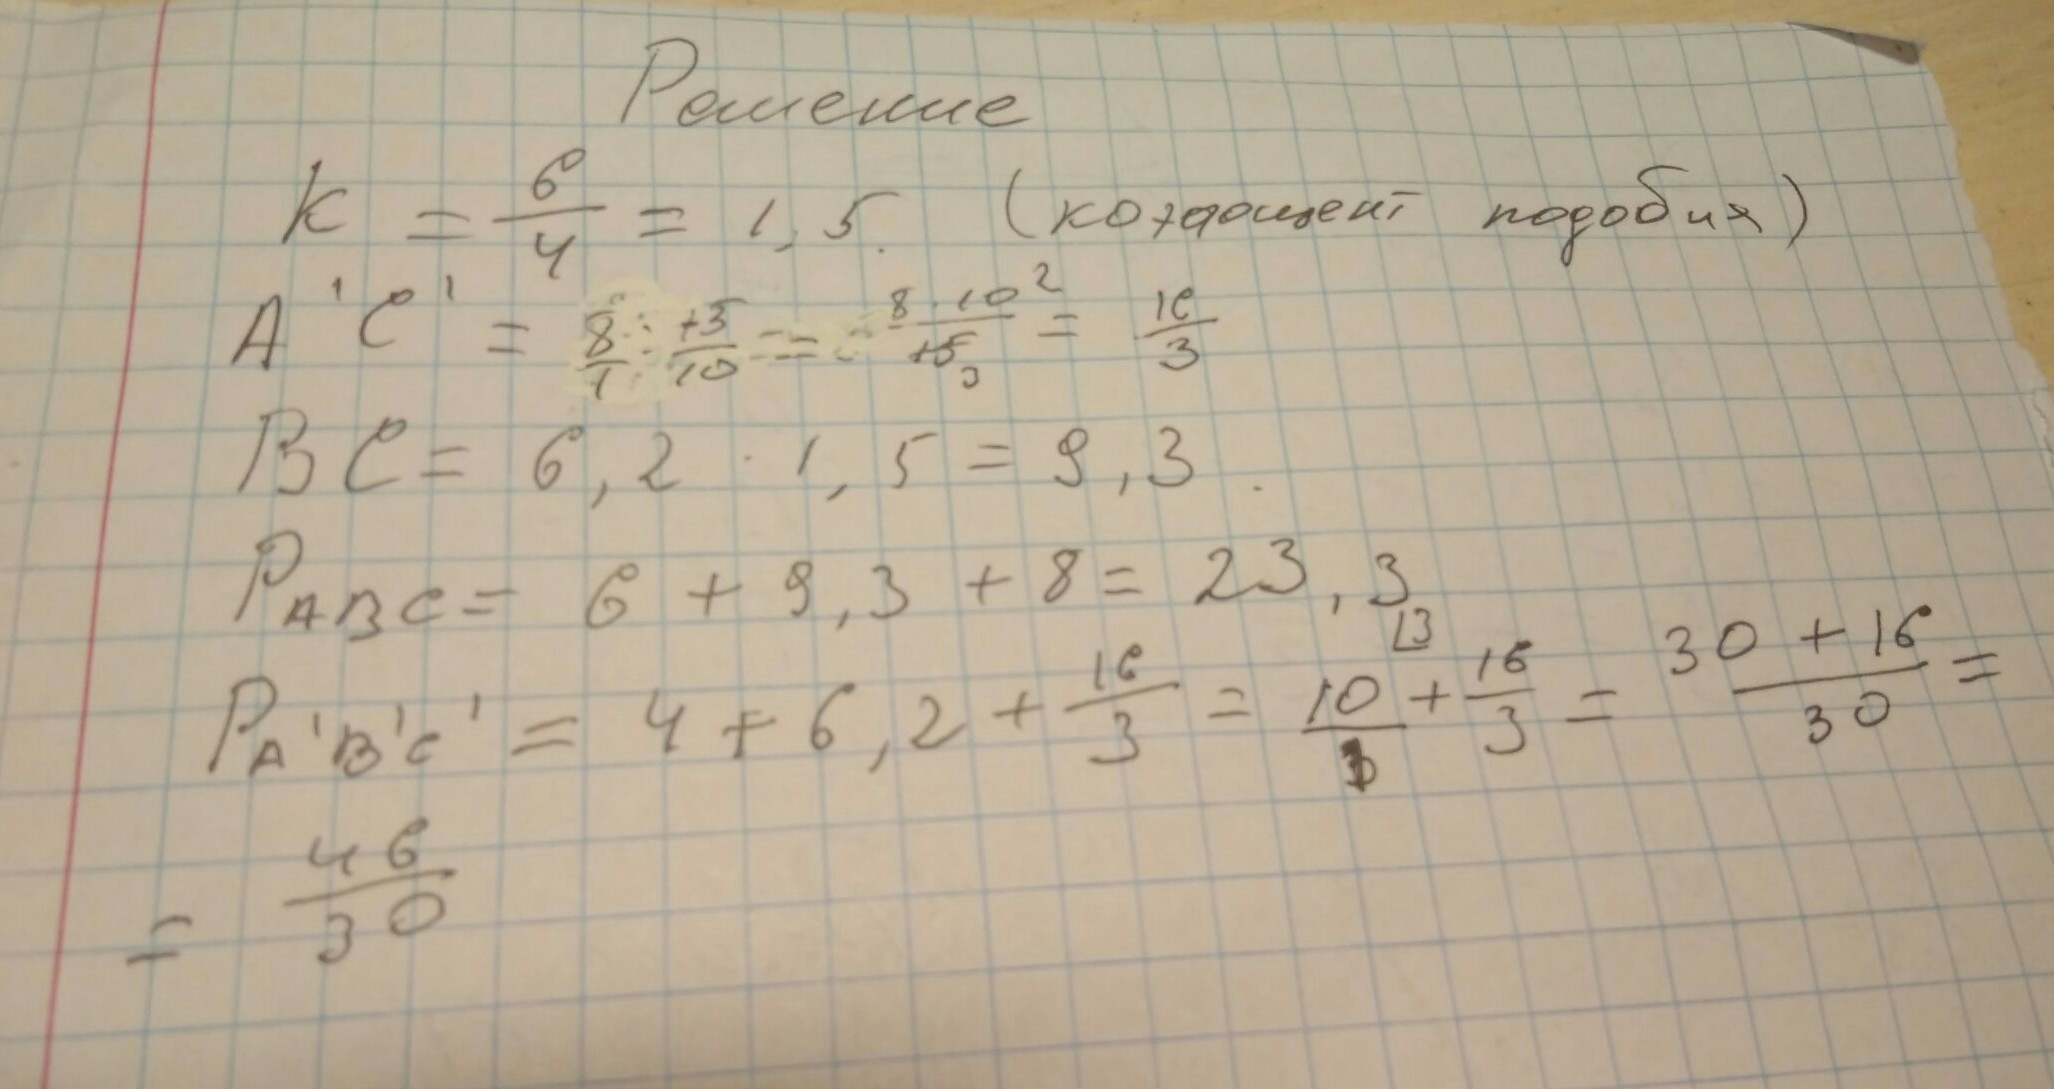 Решение
K = 6/4 = 1,5. (коэфициент подобия)
A'C' = 8/1 : 15/10 = 8·10²/15₃ = 16/3
BC = 6,2 · 1,5 = 9,3.
P ABC = 6 + 9,3 + 8 = 23,3
P A'B'C' = 4 + 6,2 + 16/3 = 10/1 + 16/3 = 30+16/30 =
= 46/30